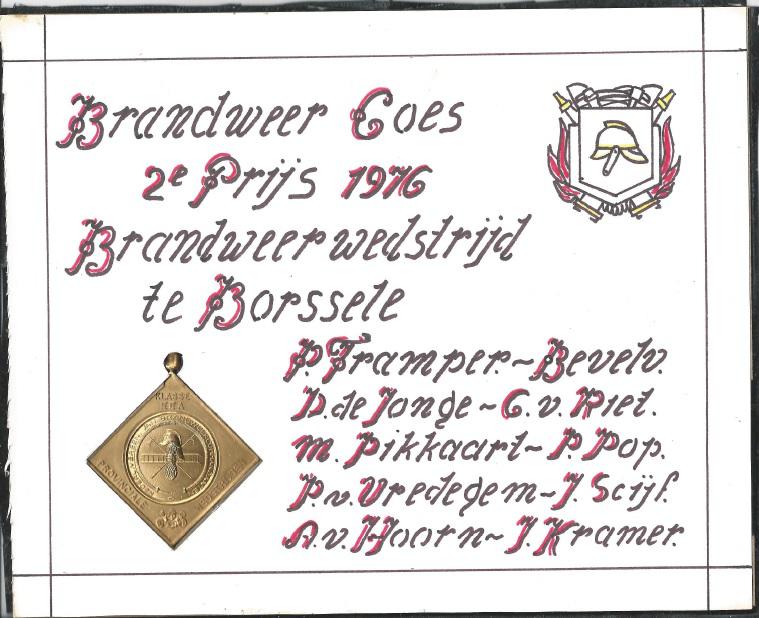 Brandweer Goes
2e Prijs 1976
Brandweerwedstrijd
te Borssele
P. Tramper. ~ Bevelv.
D. de Jonge ~ G. v. Riet.
M. Pikkaart ~ P. Pop.
P. v. Vredegem ~ J. Scijf.
A. v. Hoorn ~ J. Kramer.
KLASSE
PROVINCIALE